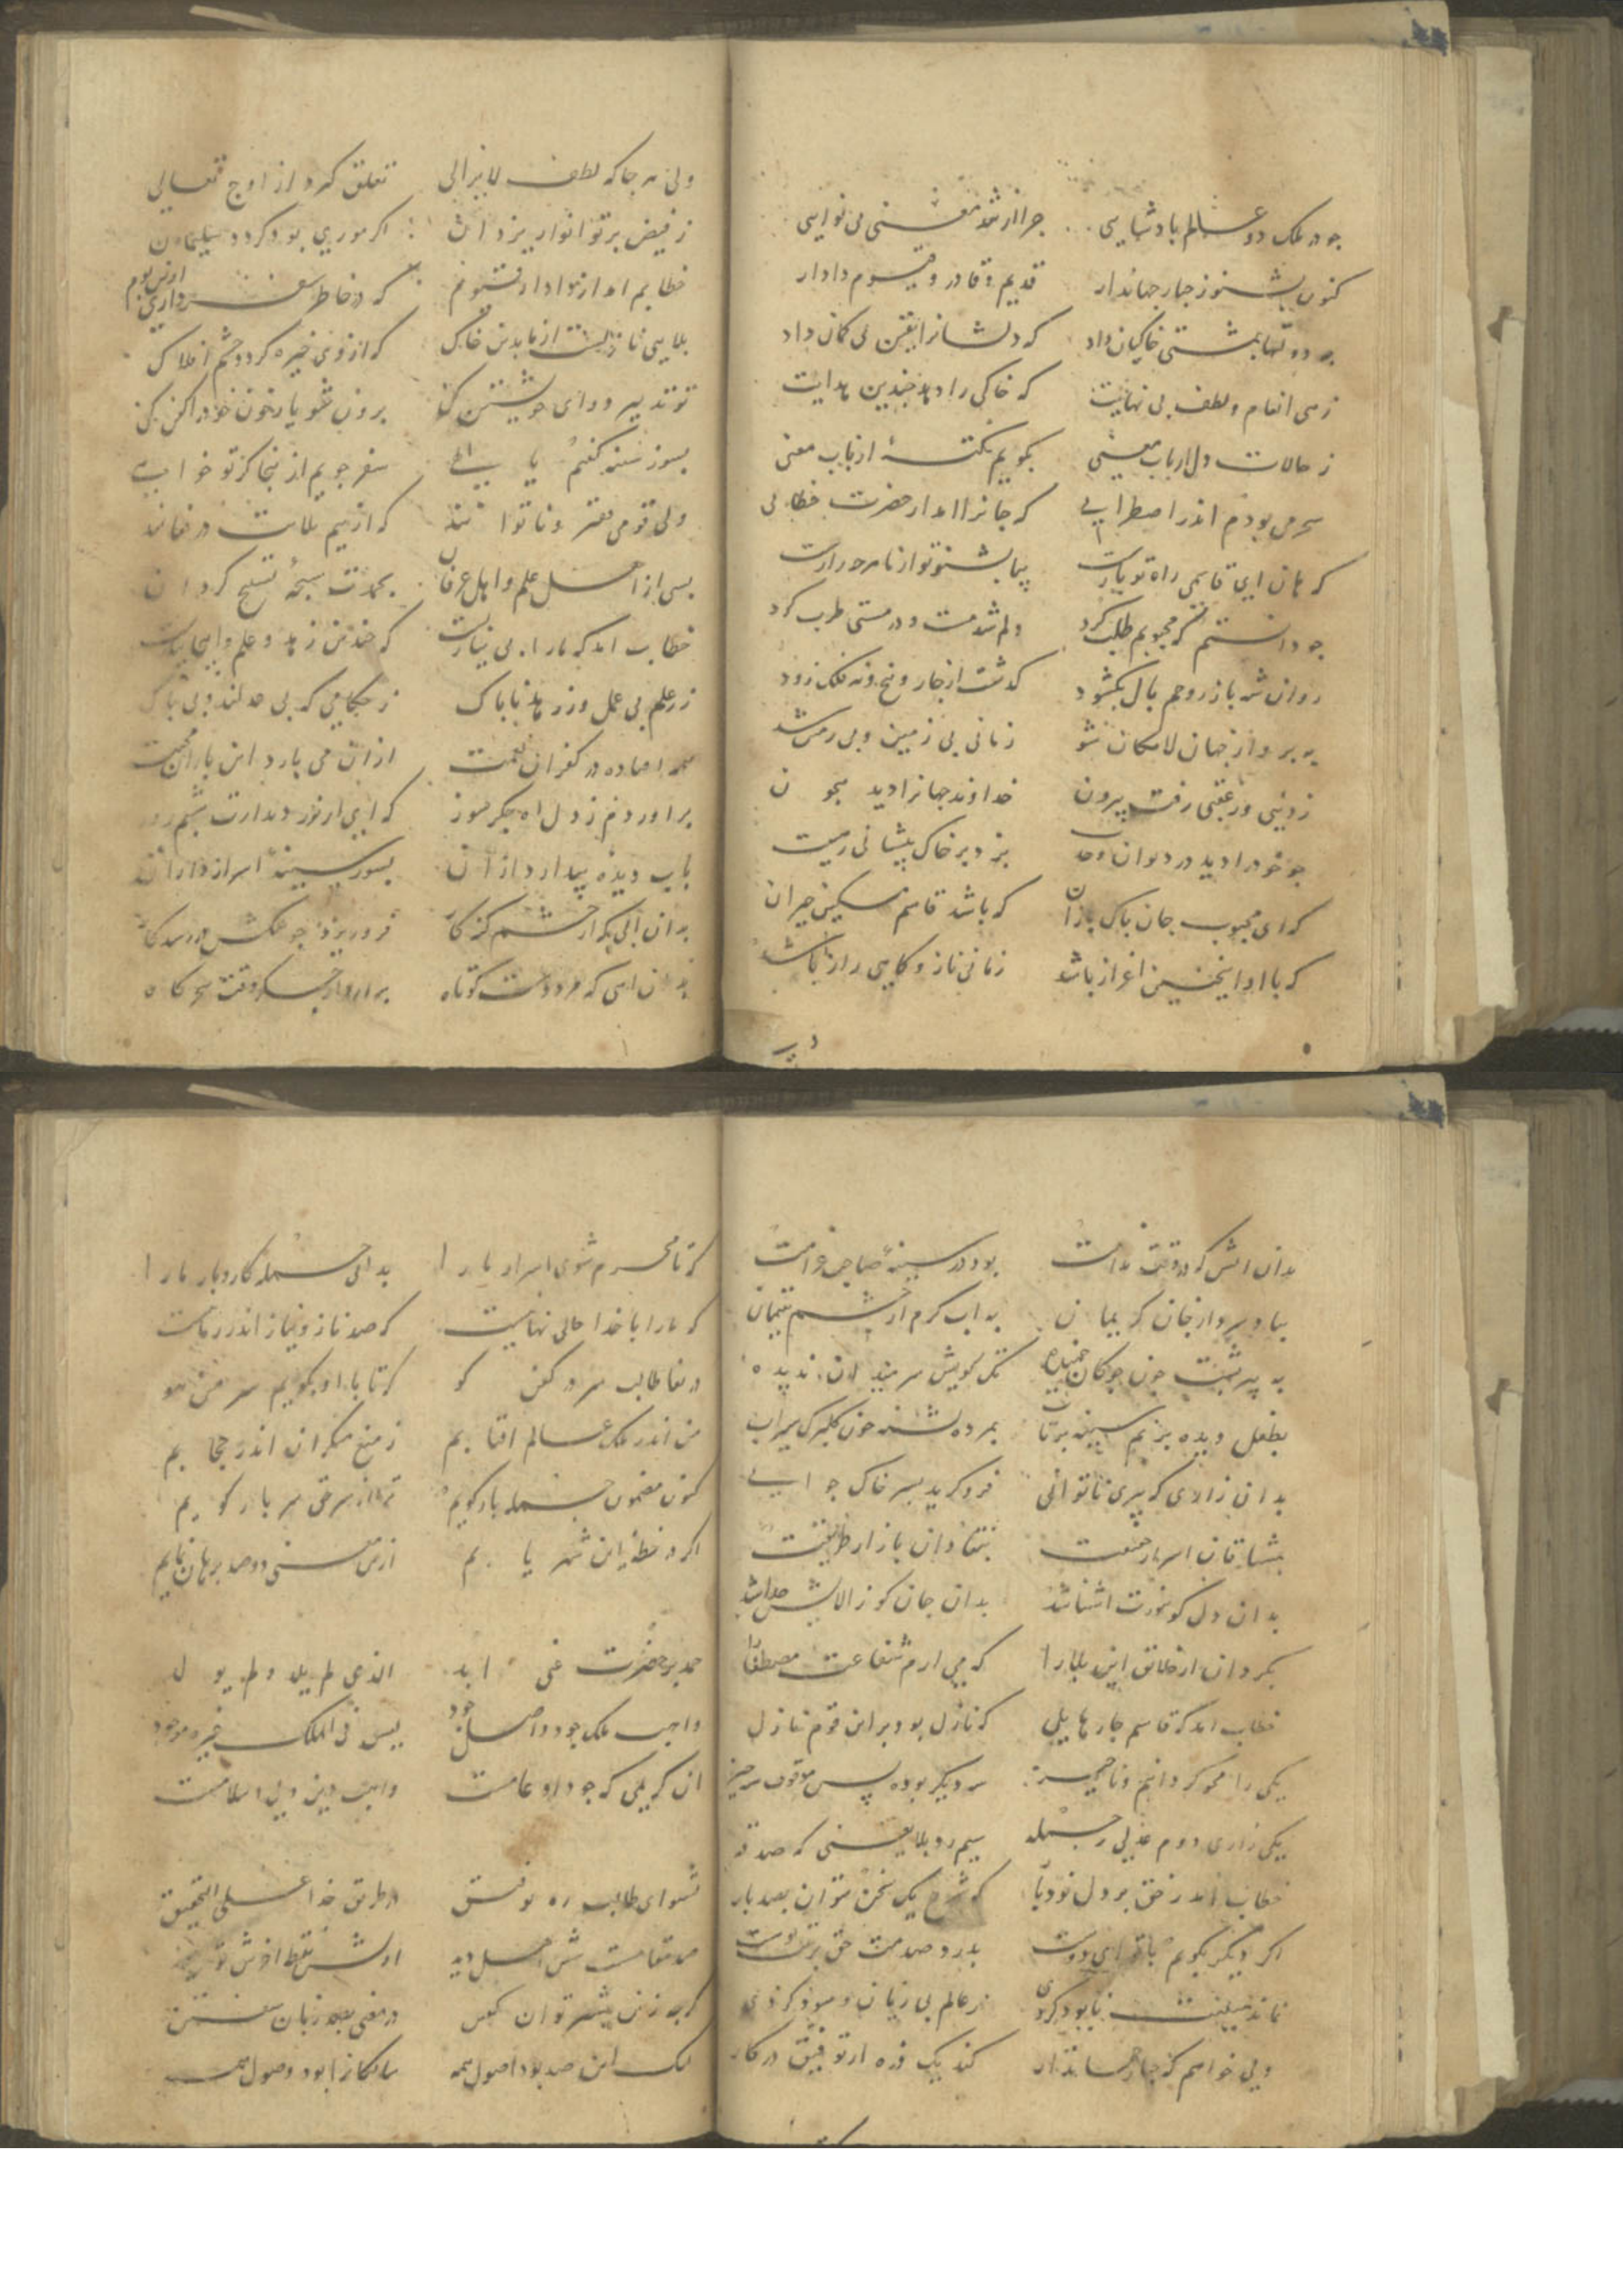 جو در ملک دو عالم پادشاهی چرا از شد معنی بی نوایی
کنون بشنو ز جبار جهاندار قدیم و قادر و قیوم دادار
چه دولتها بمشتی خاکیان داد که دلشانرا یقین بی کمان داد
زهی انعام و لطف بی نهایت که خاکی را دهد چندین هدایت
ز حالات دل ارباب معنی بکویم نکتهٔ از باب معنی
سحر می بودم اندر اضطرابی که جانرا امد از حضرت خطابی
که هان ای قاسمی راه تو بازست بیا بشنو تو از ما هر چه رازست
چو دانستم که محبوبم طلب کرد دلم شد مست و در مستی طرب کرد
روان شهباز روحم بال بکشود کذشت از چار و پنج و نه فلک زود
به پرواز جهان لامکان شد زمانی بی زمین و بی زمن شد
ز دنیی وز عقبی رفت بیرون خداوند جهانرا دید بیچون
چو خود را دید در دیوان وحدت بزد بر خاک پیشانی
که ای محبوب جان پاک بازان که باشد قاسم مسکین حیران
که با او اینچنین اعزاز باشد زمانی ناز و کاهی راز باشد
ولی هر جا که لطف لایزالی تعلق کرد از اوج تعالی
ز فیض پرتو انوار یزدان اکر موری بود کردد سلیمان
خطابم امد از نوا دار که در خاطر سفر داری
بلایی تا زلست از ما بدین خاک که از وی خیره کردد چشم افلاک
تو تدبیر ورای خویشتن کن برون شو یا رخون خود را کفن کن
بسوز سینه کفتم یا الهی سفر جویم از ینجا کر تو خواهی
ولی قومی فقیر و ناتوانند که از بیم بلات درمانند
بسی از اهل علم و اهل عرفان بحمدت سبحهٔ تسبیح کردان
خطاب امد که ما را بی نیازیست که چندین زهد و علم و اینها بازیست
ز علم بی عمل وز زهد ناپاک ز حکامی که بی عدلند و بی باک
همه افتاده در کفران نعمت از ان می بارد این باران محنت
براوردم ز دل آه جکرسوز که ای از نور دیدارت شبم روز
باب دیدهٔ بیدار داران بسوز سینهٔ اسرار داران
بدان ابی که از چشم کنه کار فرو ریزد چو عکسش در رسد کار
بدان اهی که مرد دست کوتاه برارد از جکر وقت سحرکاه
بدان اتش که در وقت ندامت بود در سینهٔ صاحب غرامت
بباد سرد از جان کریمان به اب کرم از چشم یتیمان
به پیر پشت چون چوکان خمیده
بطفل دیده پر نم سینه پرتاب بمرده تشنه چون کلبرک سیراب
بدان زاری که پیری ناتوانی فرو کرید بسر خاک جوانی
بمشتاقان اسرار حقیقت بنقادان بازار طریقت
بدان دل کو بنورت اشنا شد بدان جان کو ز الایش جدا شد
بکردان از خلائق این بلا را که می ارم شفاعت مصطفی را
خطاب امد که قاسم چار هایلی که نازل بود بر این قوم نازل
یکی را محو کردانیم و ناچیز سه دیکر بوده پس موقوف سر خیز
یکی زاری دوم عزلی ز جمله سیم رد بلا یعنی که صدقه
خطاب امد ز حق بر دل نو دبار که شرح یک سخن نتوان بصد بار
اکر دیکر بکویم با تو ای دوست بدرد صد منت حق بر تنت پوست
نماند میلت نابود کردی ز عالم بی زیان و سود کردی
ولی خواهم کز جبار جهاندار کند یک ذره از توفیق در کار
که تا محرم شوی اسرار ما را بدانی جمله کار و بار ما را
که ما را با خدا حالی نهانیست که صد ناز و نیاز اندر میانست
دریغا طالب سر در کفن کو که تا با او بکویم سر من هو
من اندر ملک عالم افتابم ز منع منکران اندر حجابم
کنون مضمون جمله باز کویم ترا از سر حق سر باز کویم
اکر در خطهٔ این شهر یابم ازین معنی دو صد برهان نمایم
حمد بر حضرت غنی ابد الذی لم یلد و لم یولد
واهب ملک جود و اصل وجود لیس فی الملک غیره موجود
ان کریمی که جود او عامست واهب دین و دل اسلامست
بشنو ای طالب ره توفیق در طریق خدا علی التحقیق
صد مقامست شش اصل دید اولش نقطه اخرش توحید
کر چه زین بیشتر توان کفتن در معنی بصد زبان سفتن
لیک این صد بود اصول همه سالکانرا بود وصول همه